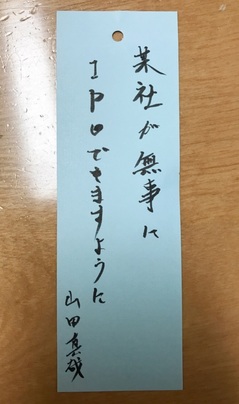 某社が無事に
IPOできますように
山田真哉